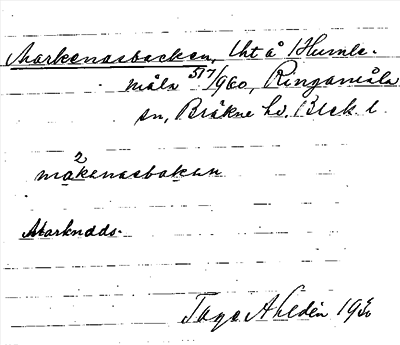 Markenasbacken, Uht å Humle-
måla 517/960, Ringamåla
sn, Bräkne hd. Blek. l.
2
måkenasbakan
Marknads-
Tage Ahldén 1930